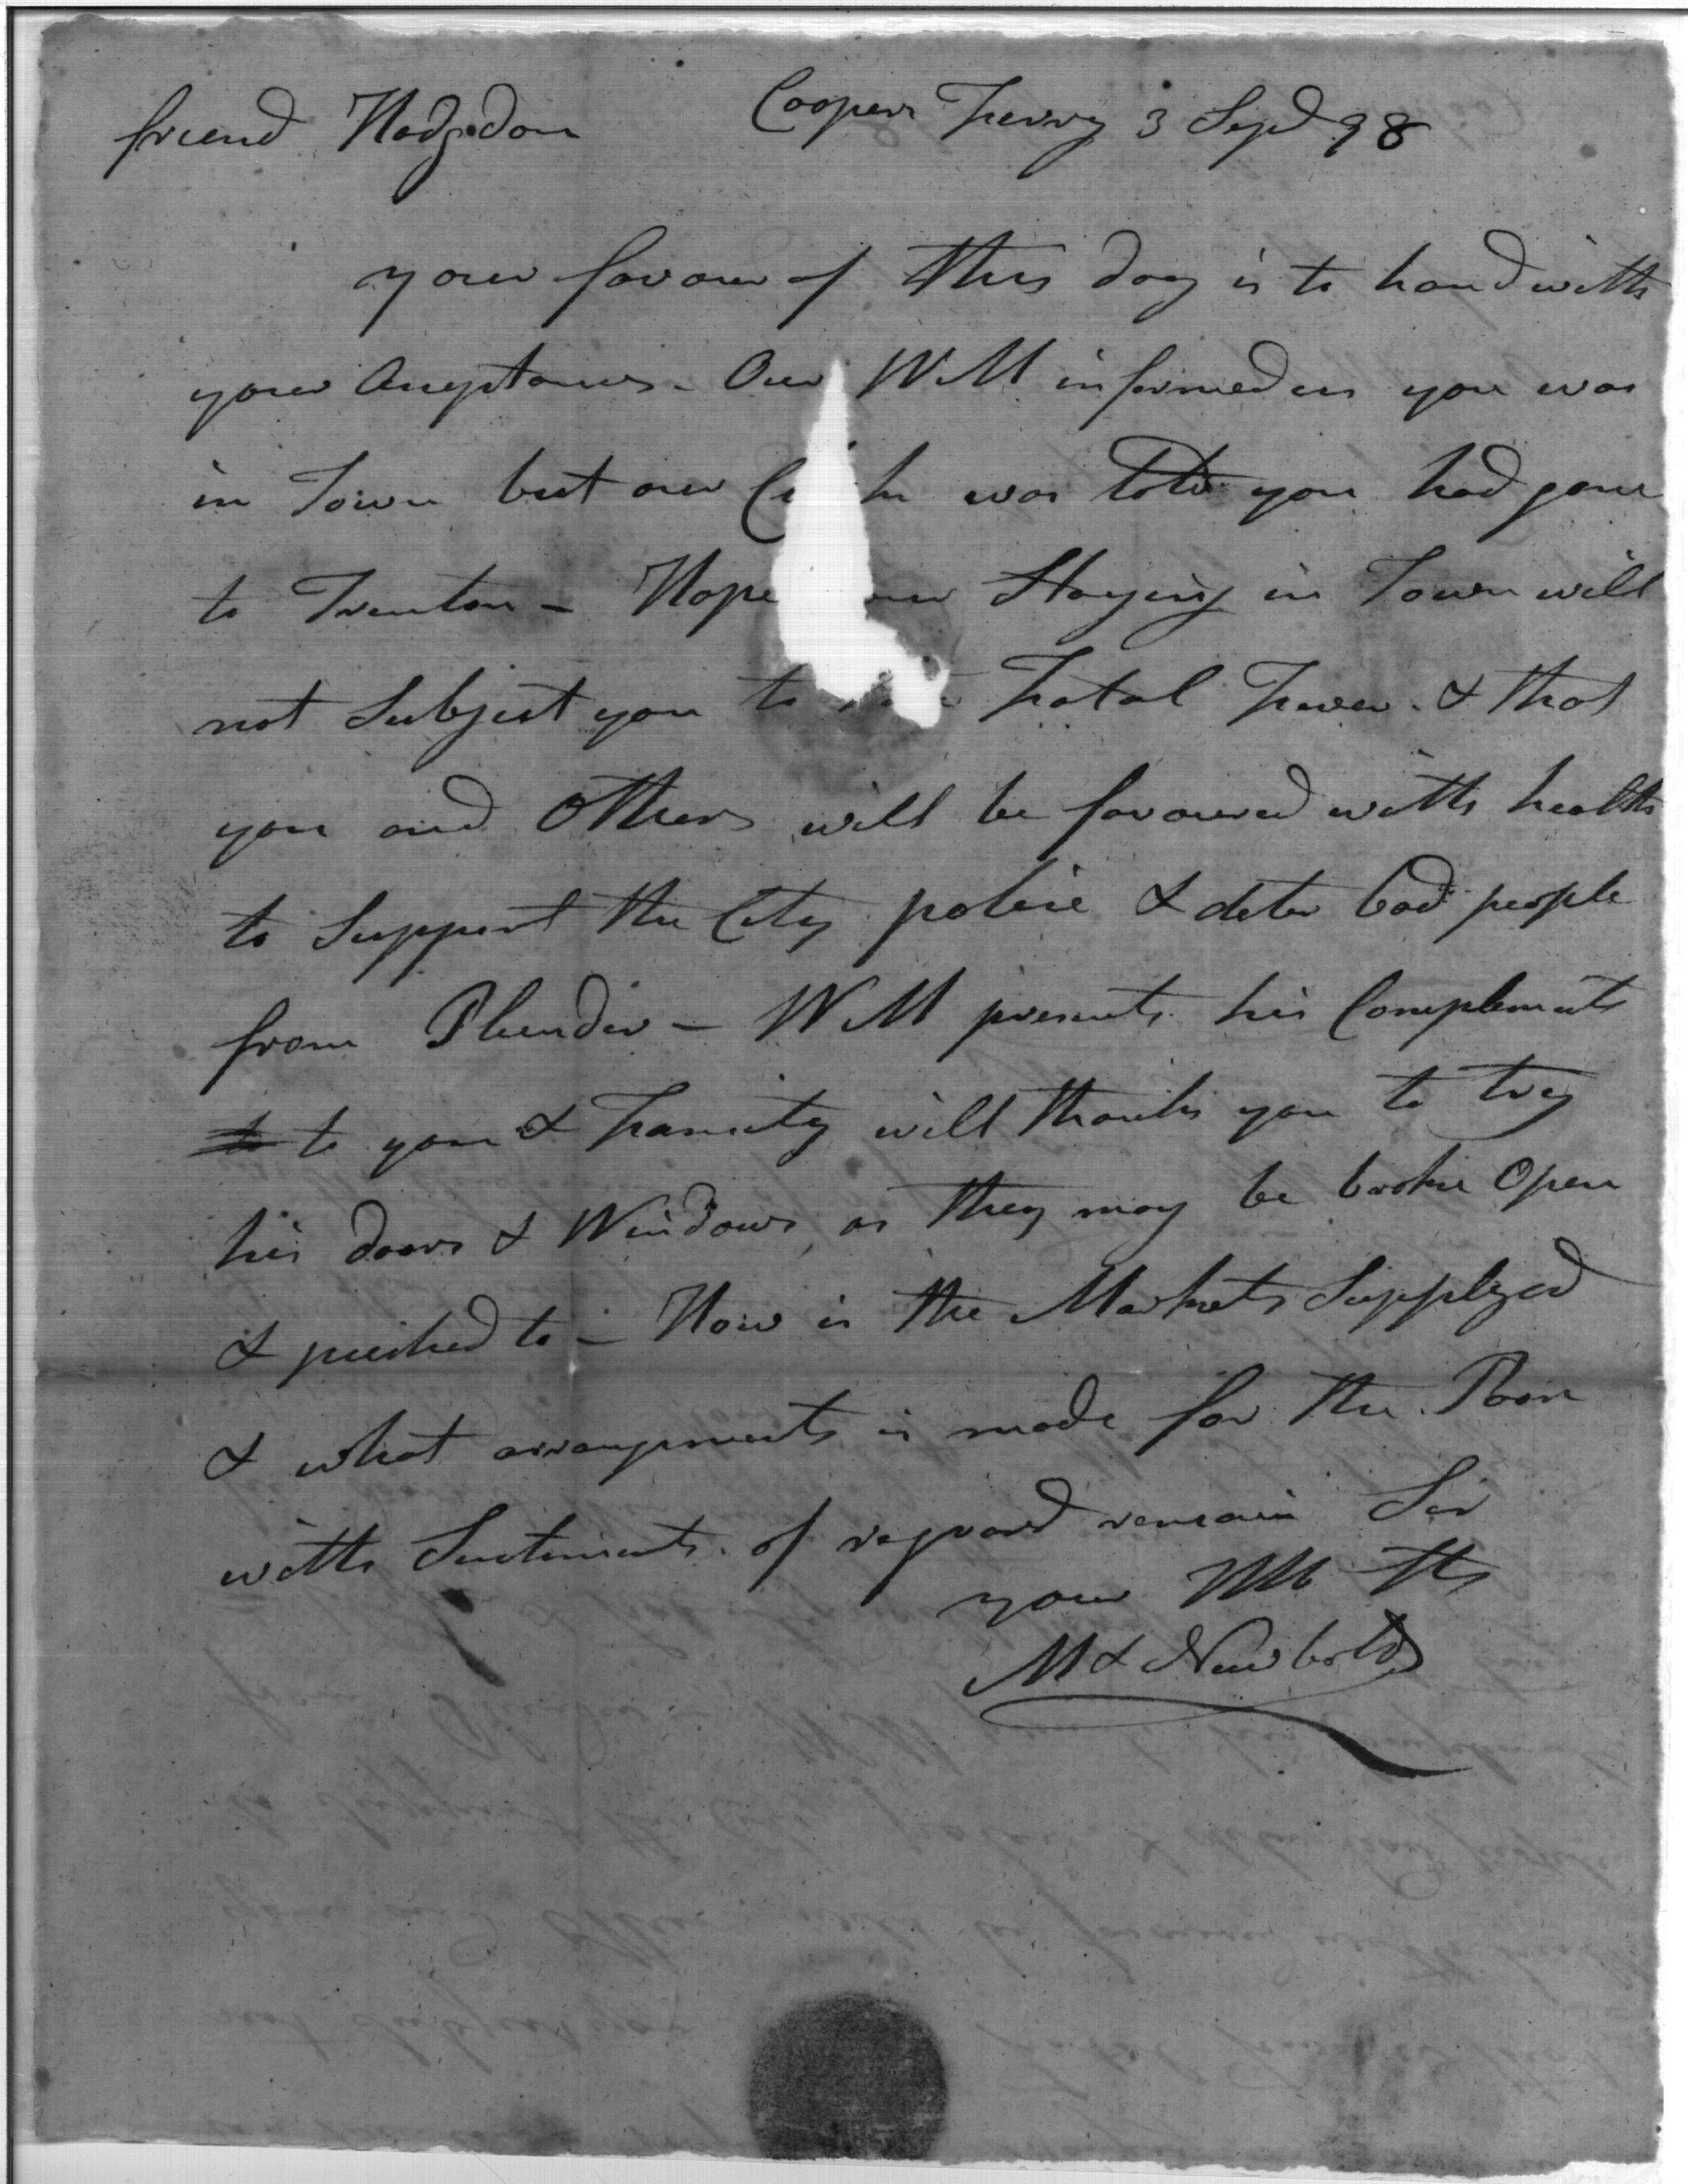 Coopers Ferry 3 Sepd 98
friend Hodgdon
your favour of this day is to hand with
your Acceptances - Our WM informed us you was
in Town but our was told you had gone
to Trenton - Hope your Staying in Town will
not Subject you to Fatal Fever & that
you and Others will be favoured with health
to Support the City police & deter bad people
from Plunder - WM presents his Complements
to to you & Family will thank you to try
his doors & Windows as they may be broke Open
& pushed to - How is the Markets Supplyed
& what arrangements is made for the Poor
with Sentiments of reguard remain Sir
your
M & Newbold